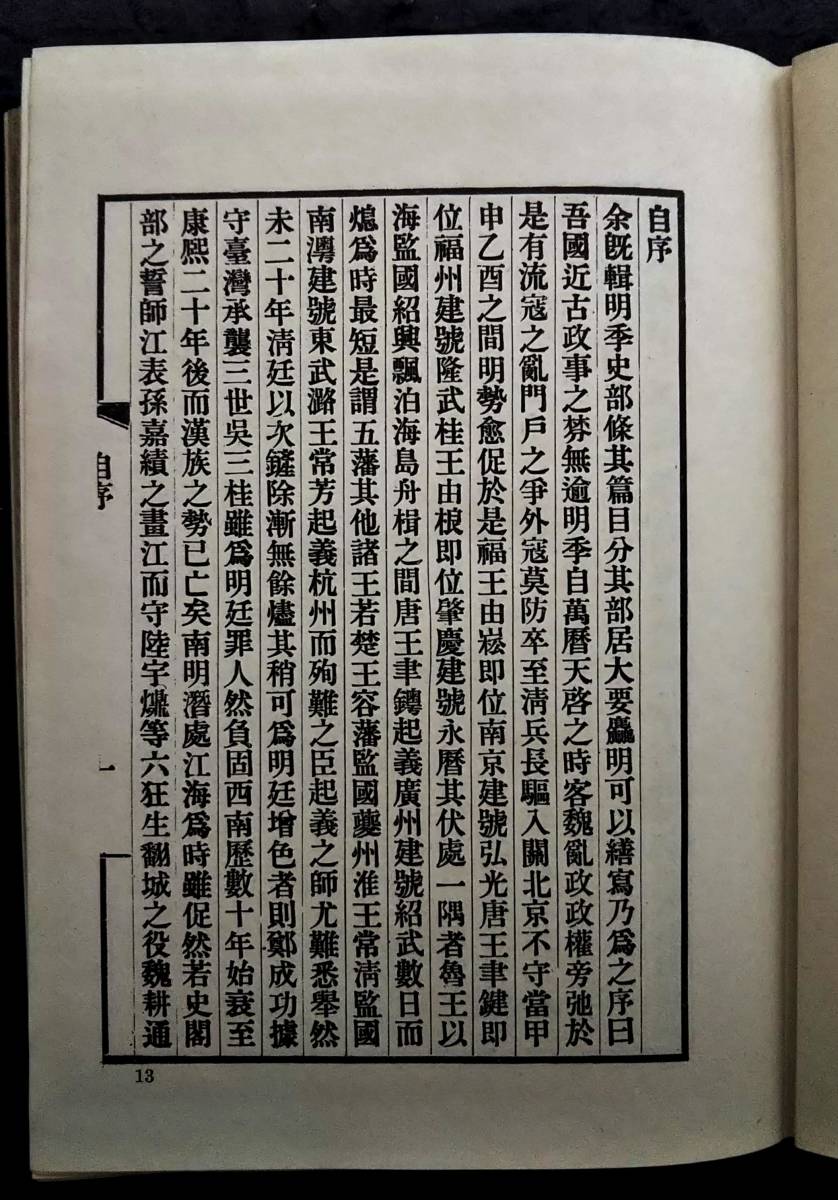 自序
余旣輯明季史部條其篇目分其部居大要麤明可以繕寫乃爲之序曰
吾國近古政事之棼無逾明季自萬曆天啓之時客魏亂政政權旁弛於
是有流寇之亂門戶之爭外寇莫防卒至淸兵長驅入關北京不守當甲
申乙酉之間明勢愈促於是福王由崧即位南京建號弘光唐王聿鍵即
位福州建號隆武桂王由榔即位肇慶建號永曆其伏處一隅者魯王以
海監國紹興飄泊海島舟楫之間唐王聿鐭起義廣州建號紹武數日而
熄爲時最短是謂五藩其他諸王若楚王容藩監國夔州淮王常淸監國
南澳建號東武潞王常芳起義杭州而殉難之臣起義之師尤難悉舉然
未二十年淸廷以次鏟除漸無餘燼其稍可爲明廷增色者則鄭成功據
守臺灣承襲三世吳三桂雖爲明廷罪人然負固西南歷數十年始衰至
康熙二十年後而漢族之勢已亡矣南明潛處江海爲時雖促然若史閣
部之誓師江表孫嘉績之畫江而守陸宇𤐧等六狂生翻城之役魏耕通
自序
一
13